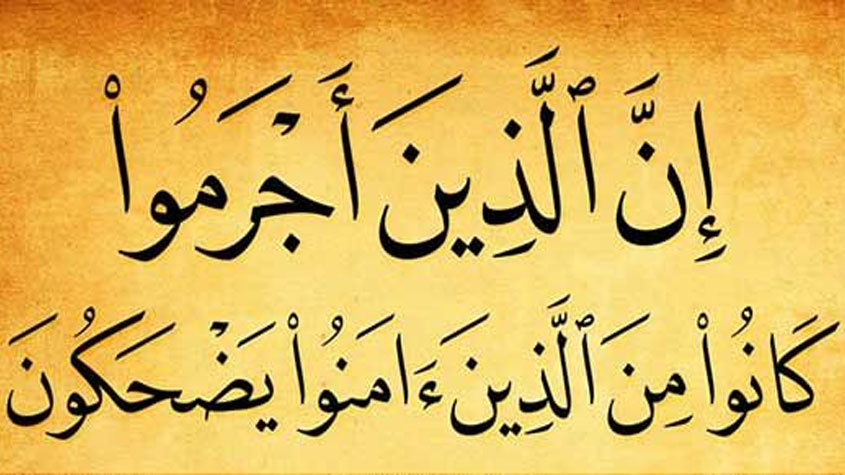 إِنَّ ٱلَّذِينَ أَجْرَمُوا۟
كَانُوا۟ مِنَ ٱلَّذِينَ ءَامَنُوا۟ يَضْحَكُونَ